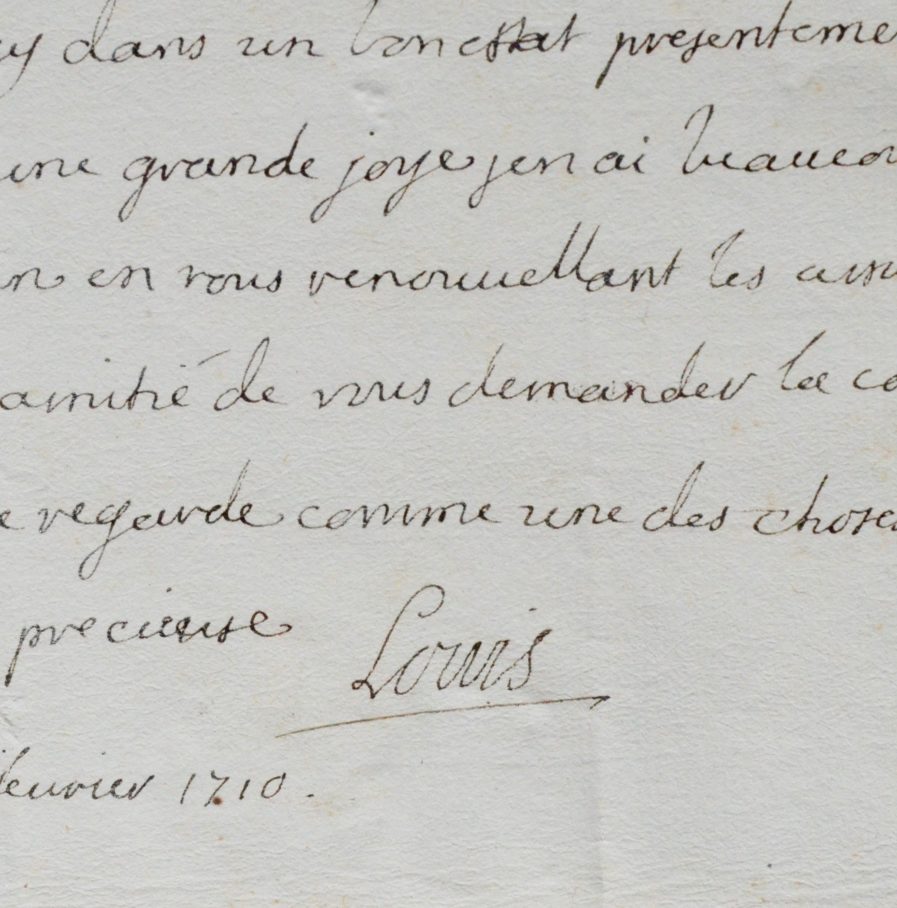 dans un bon estat presenteme
une grande joye jen ai beaucou
en vous renouuellant les assu
amitié de vous demander la co
e regarde comme une des choses
precieuse Louis
feurier 1710.